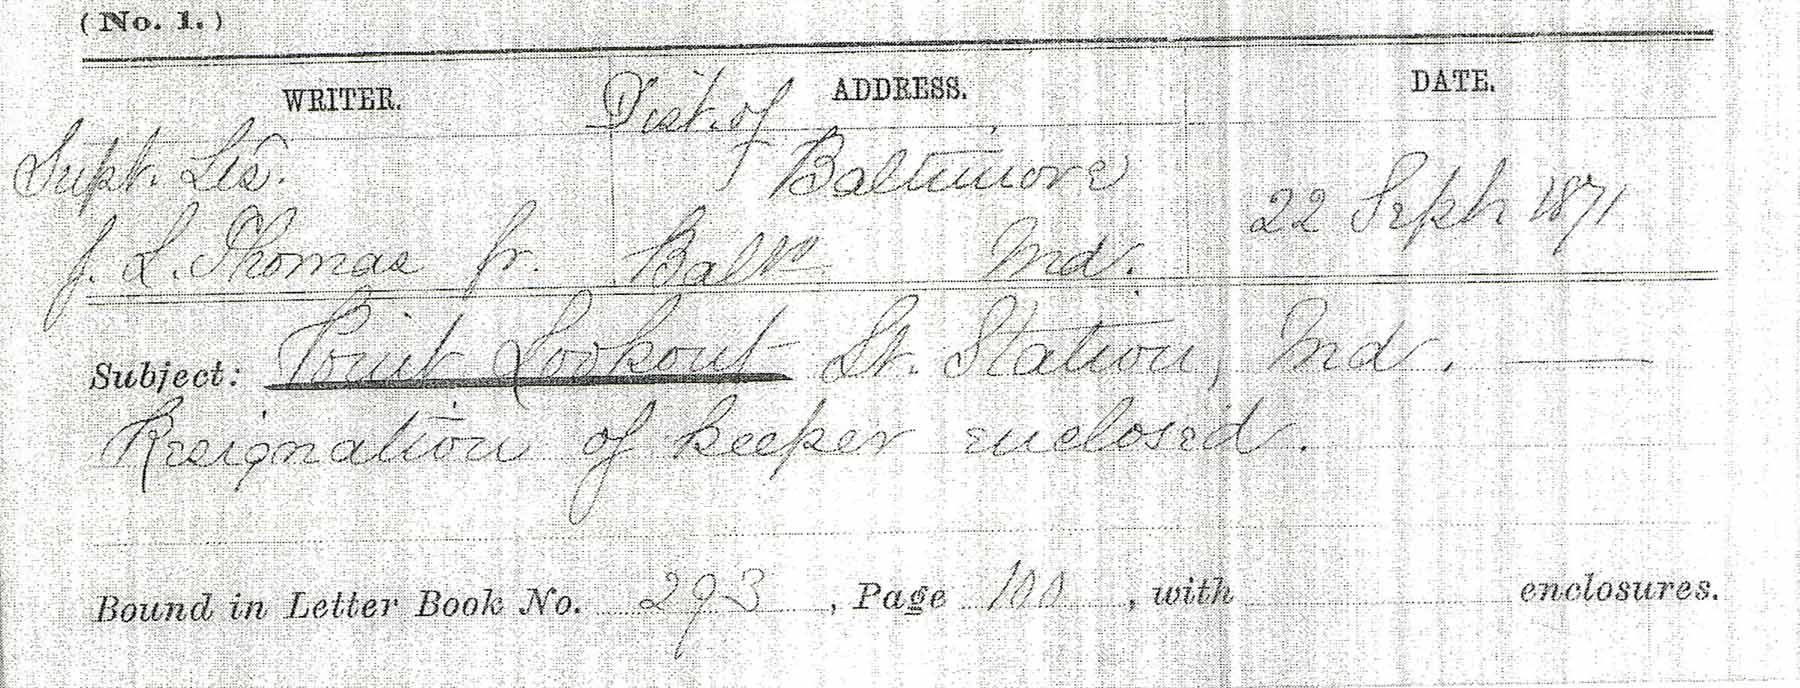 (No. 1.)
WRITER. ADDRESS. DATE.
Dist. of
Supt. Lts. Baltimore
J. L. Thomas Jr. Balto Md. 22 Sept 1871
Subject: Point Lookout Lt. Station, Md.
Resignation of keeper enclosed.
Bound in Letter Book No. 293, Page 100, with enclosures.